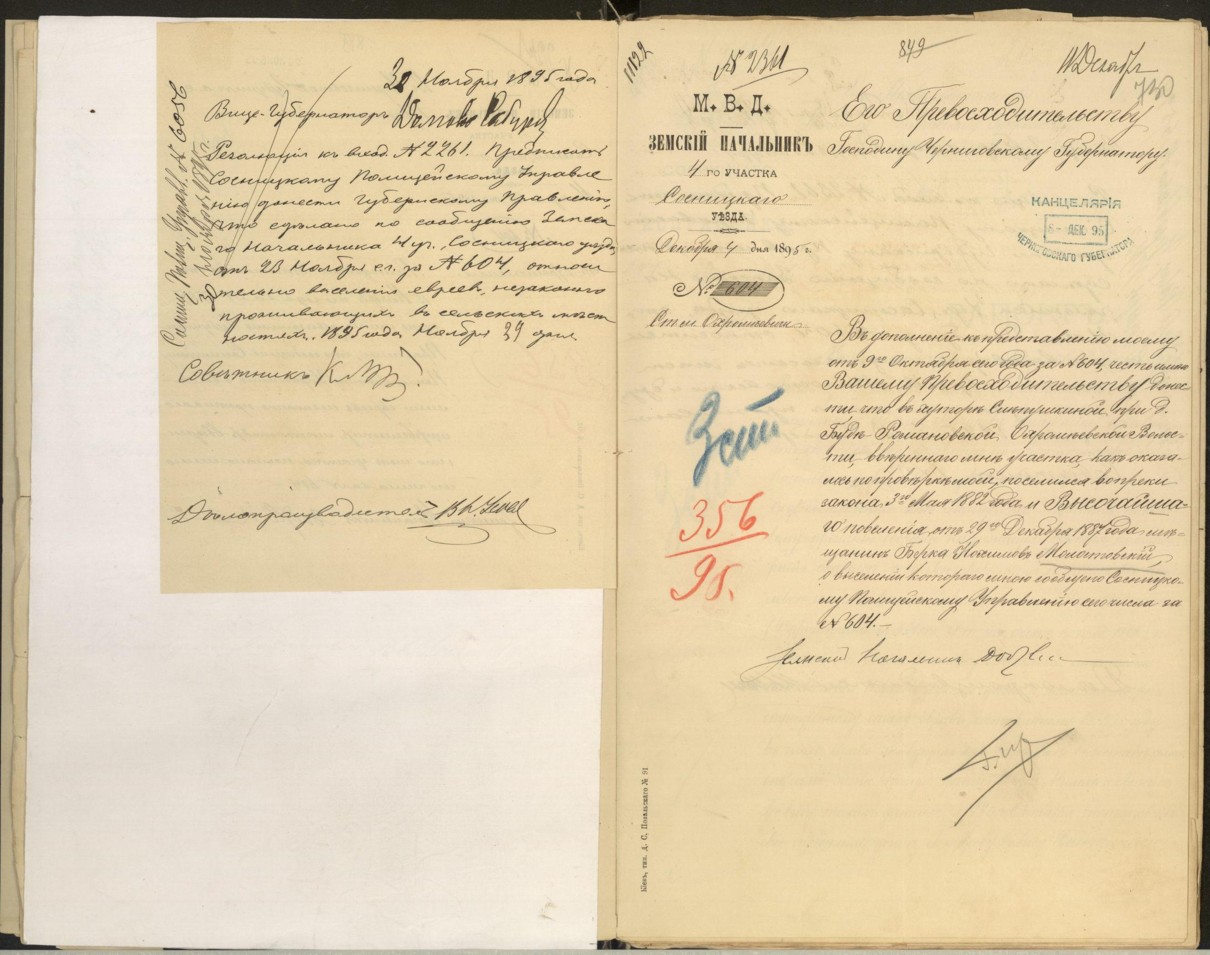 30 Ноября 1895 года
Вице-Губернаторъ
Резолюція къ вход. № 2261. Предписать
Сосницкому Полицейскому Управле
нію донести Губернскому Правленію,
что сдѣлано по сообщенію Земска
го Начальника 4 уч., Сосницкого уѣзда,
отъ 23 Ноября с.г. за № 604, относи
тельно выселенія евреевъ, незаконно
проживающихъ въ сельскихъ мѣст
ностяхъ. 1895 года Ноября 29 дня
Совѣтникъ
Дѣлопроизводитель
№ 6056
11122
№ 2361
849
11 Декабр
М. В. Д.
ЗЕМСКІЙ НАЧАЛЬНИКЪ
4 ГО УЧАСТКА
Сосницкаго
УѢЗДА
Декабря 4 дня 1895 г.
№ 604
Его Превосходительству
Господину Черниговскому Губернатору.
КАНЦЕЛЯРІЯ
8 - ДЕК. 95
ЧЕРНИГОВСКАГО ГУБЕРНАТОРА
Въ дополненіе къ представленію моему
отъ 9го Октября сего года за № 604, честь имѣю
Вашему Превосходительству донес-
ти, что въ хуторѣ при д.
Будѣ Романовской, Охромѣевской Волос-
ти, ввѣреннаго мнѣ участка, какъ оказа-
лось по провѣркѣ мной, поселился вопреки
закона 3го Мая 1882 года и Высочайша-
го повелѣнія отъ 29го Декабря 1887 года мѣ-
щанинъ Берка
о выселеніи котораго мною сообщено Сосницко-
му Полицейскому Управленію сего числа за
№ 604.—
Земскій Начальникъ
3 ст
356
95.
Кіевъ, тип. Д. С. Повальскаго № 91